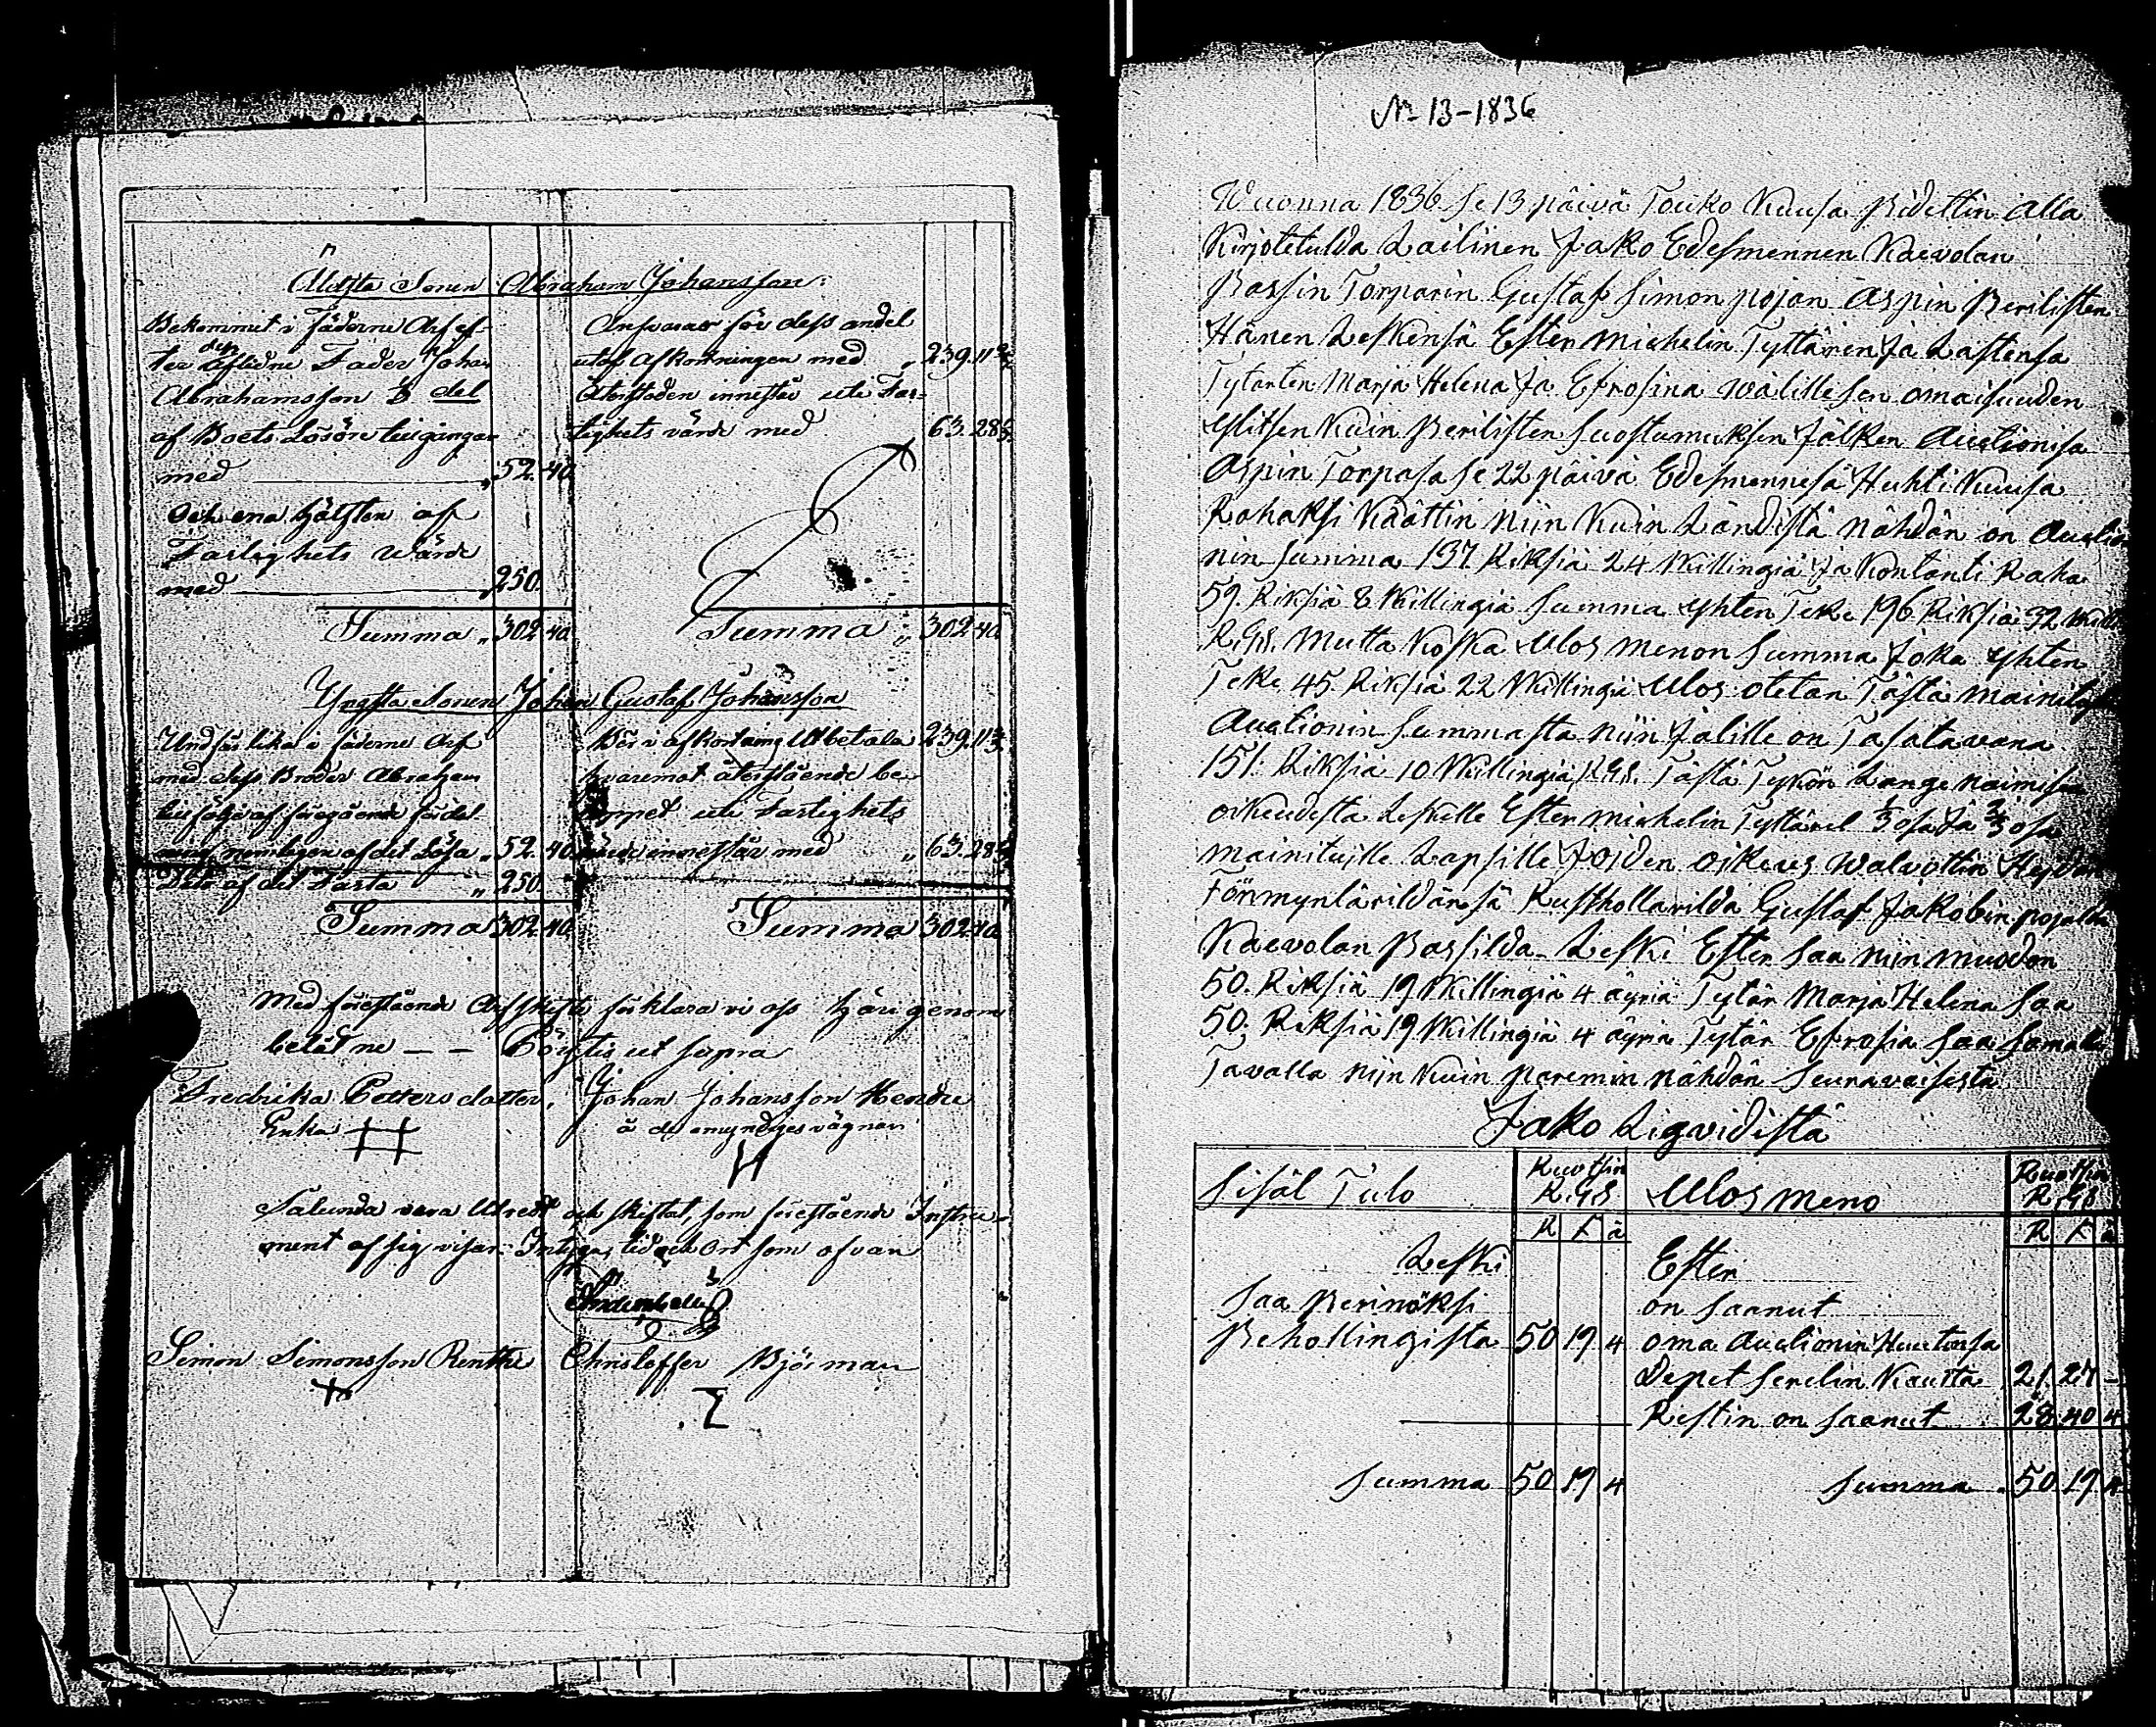 Älsta Sonen Abraham Johansson:
Bekommit i Fäderne Arf ef-
ter den Aflidne Fader Joha
Abrahamsson ⅓ del
af Boets Lösöre tillgångar
med „ 52. 40
Och ena hälften af
Fastighets Wärde
med „ 250.
Summa „ 302 40
Ansvarar för dess andel
utaf afkortningen med „ 239. 11
Återstoden innestår uti Fas-
tighets värde med 63. 28
Summa „ 302 40
Yngsta Sonen Johan Gustaf Johansson
Undfår lika i fäderne Arf
med dess Broder Abraham
til följe af föregående fördel-
ning, nemligen af det Lösa „ 52. 40
Dito af det Fasta „ 250.
Summa 302. 40
Bör i afkortning Utbetala 239. 11
hvaremot återstående be-
loppet uti Fastighets
värde innestår med „ 63. 28
Summa 302 40
Med förestående Arfskifte förklara vi oss härigenom
belåtne — — Böystis ut supra
Fredrika Pettersdotter, Johan Johansson Mendre
Enka å de omyndiges vägnar
Sålunda vara Utredt och skiftat, som förestående Instru-
ment af sig visar: Intyga, tid och Ort som ofvan
Simon Simonsson Renthe Christoffer Björman
No 13-1836
Wuonna 1836 se 13 päivä Touko Kuusa Pidettin Alla
Kirjotetulda Lailinen Jako Edesmennen Kaevolan
Passin Torparin Gustaf Simon pojan Aspin Perilisten
Hänen Leskensä Ester Michelin Tyttären Ja Lastensa
Tytarten Marja Helena Ja Efrosina wälille sen omaisuuden
Ylitsen Kuin Perilisten Suostumuksen Jälken Auctionisa
Aspin Torpasa se 22 päivä Edesmennesä Huhti Kuusa
Rahaksi Käättin Niin Kuin Ländistä nähdän on Auctio
nin Summa 137 Riksiä 24 Killingiä Ja Kontanti Raha
59. Riksiä 8 Killingiä Summa Yhten Teke 196 Riksiä 32 Kill
R.G.S. Mutta Koska Ulos menon Summa Joka Yhten
Teke 45. Riksiä 22 Killingiä Ulos otetan Tästä mainitust
Auctionin Summasta niin Jälille on Tasatavana
151. Riksiä 10 Killingiä R.G.S. Tästä Tykön Lange naimisen
oikeudesta Leskelle Ester Michelin Tyttärel ⅓ osa Ja ⅔ osa
mainituille Lapsille Joiden oikeus walvottin Heidän
Förmyntärildänsä Rusthollarilda Gustaf Jakobin pojalda
Kaevolan Passilda. Leski Ester Saa niin muodon
50. Riksiä 19 Killingiä 4 äyriä Tytär Marja Helena Saa
50. Riksiä 19 Killingiä 4 äyriä Tytär Efrosia Saa Samalla
Tavalla niin Kuin paremin nähdän Seuravaisesta
Jako Ligvidistä
Sisäl Tulo Ruotsin R.G.S Ulos meno Ruotsin R.G.S
R K ä R K ä
Leski Ester
Saa Perinöksi on Saanut
Behollingista 50 19 4 oma Auctionin Huutonsa
Depet Serelin Kautta 21. 27 –
Restin on Saanut 28 40 4
Summa 50 19 4 Summa 50 19 4